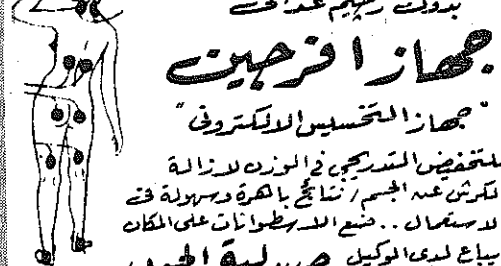 بدون رجيم غذائى
جهاز افرجين
"جهاز التخسيس الالكترونى"
للتخفيض التدريجى فى الوزن لازالة
الكرش عند الجسم / نتائج باهرة وسهولة فى
الاستعمال .. ضع الاسطوانات على المكان
يباع لدى الوكيل صيدلية